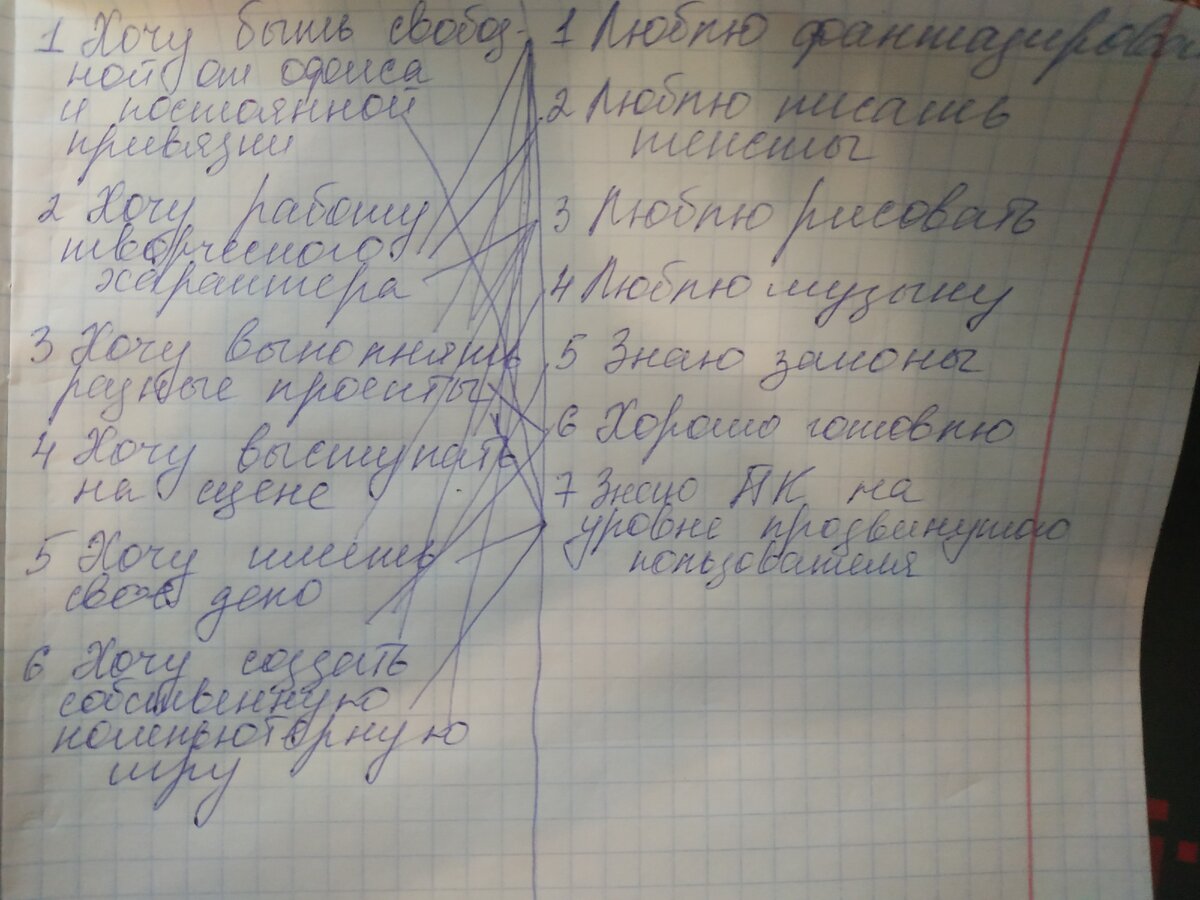 1 Хочу быть свобод-
ной от офиса
и постоянной
привязки
2 Хочу работу
творческого
характера
3 Хочу выполнять
разные проекты
4 Хочу выступать
на сцене
5 Хочу иметь
свое дело
6 Хочу создать
собственную
компьютерную
игру
1 Люблю фантазирова
2 Люблю писать
тексты
3 Люблю рисовать
4 Люблю музыку
5 Знаю законы
6 Хорошо готовлю
7 Знаю ПК на
уровне продвинутого
пользователя